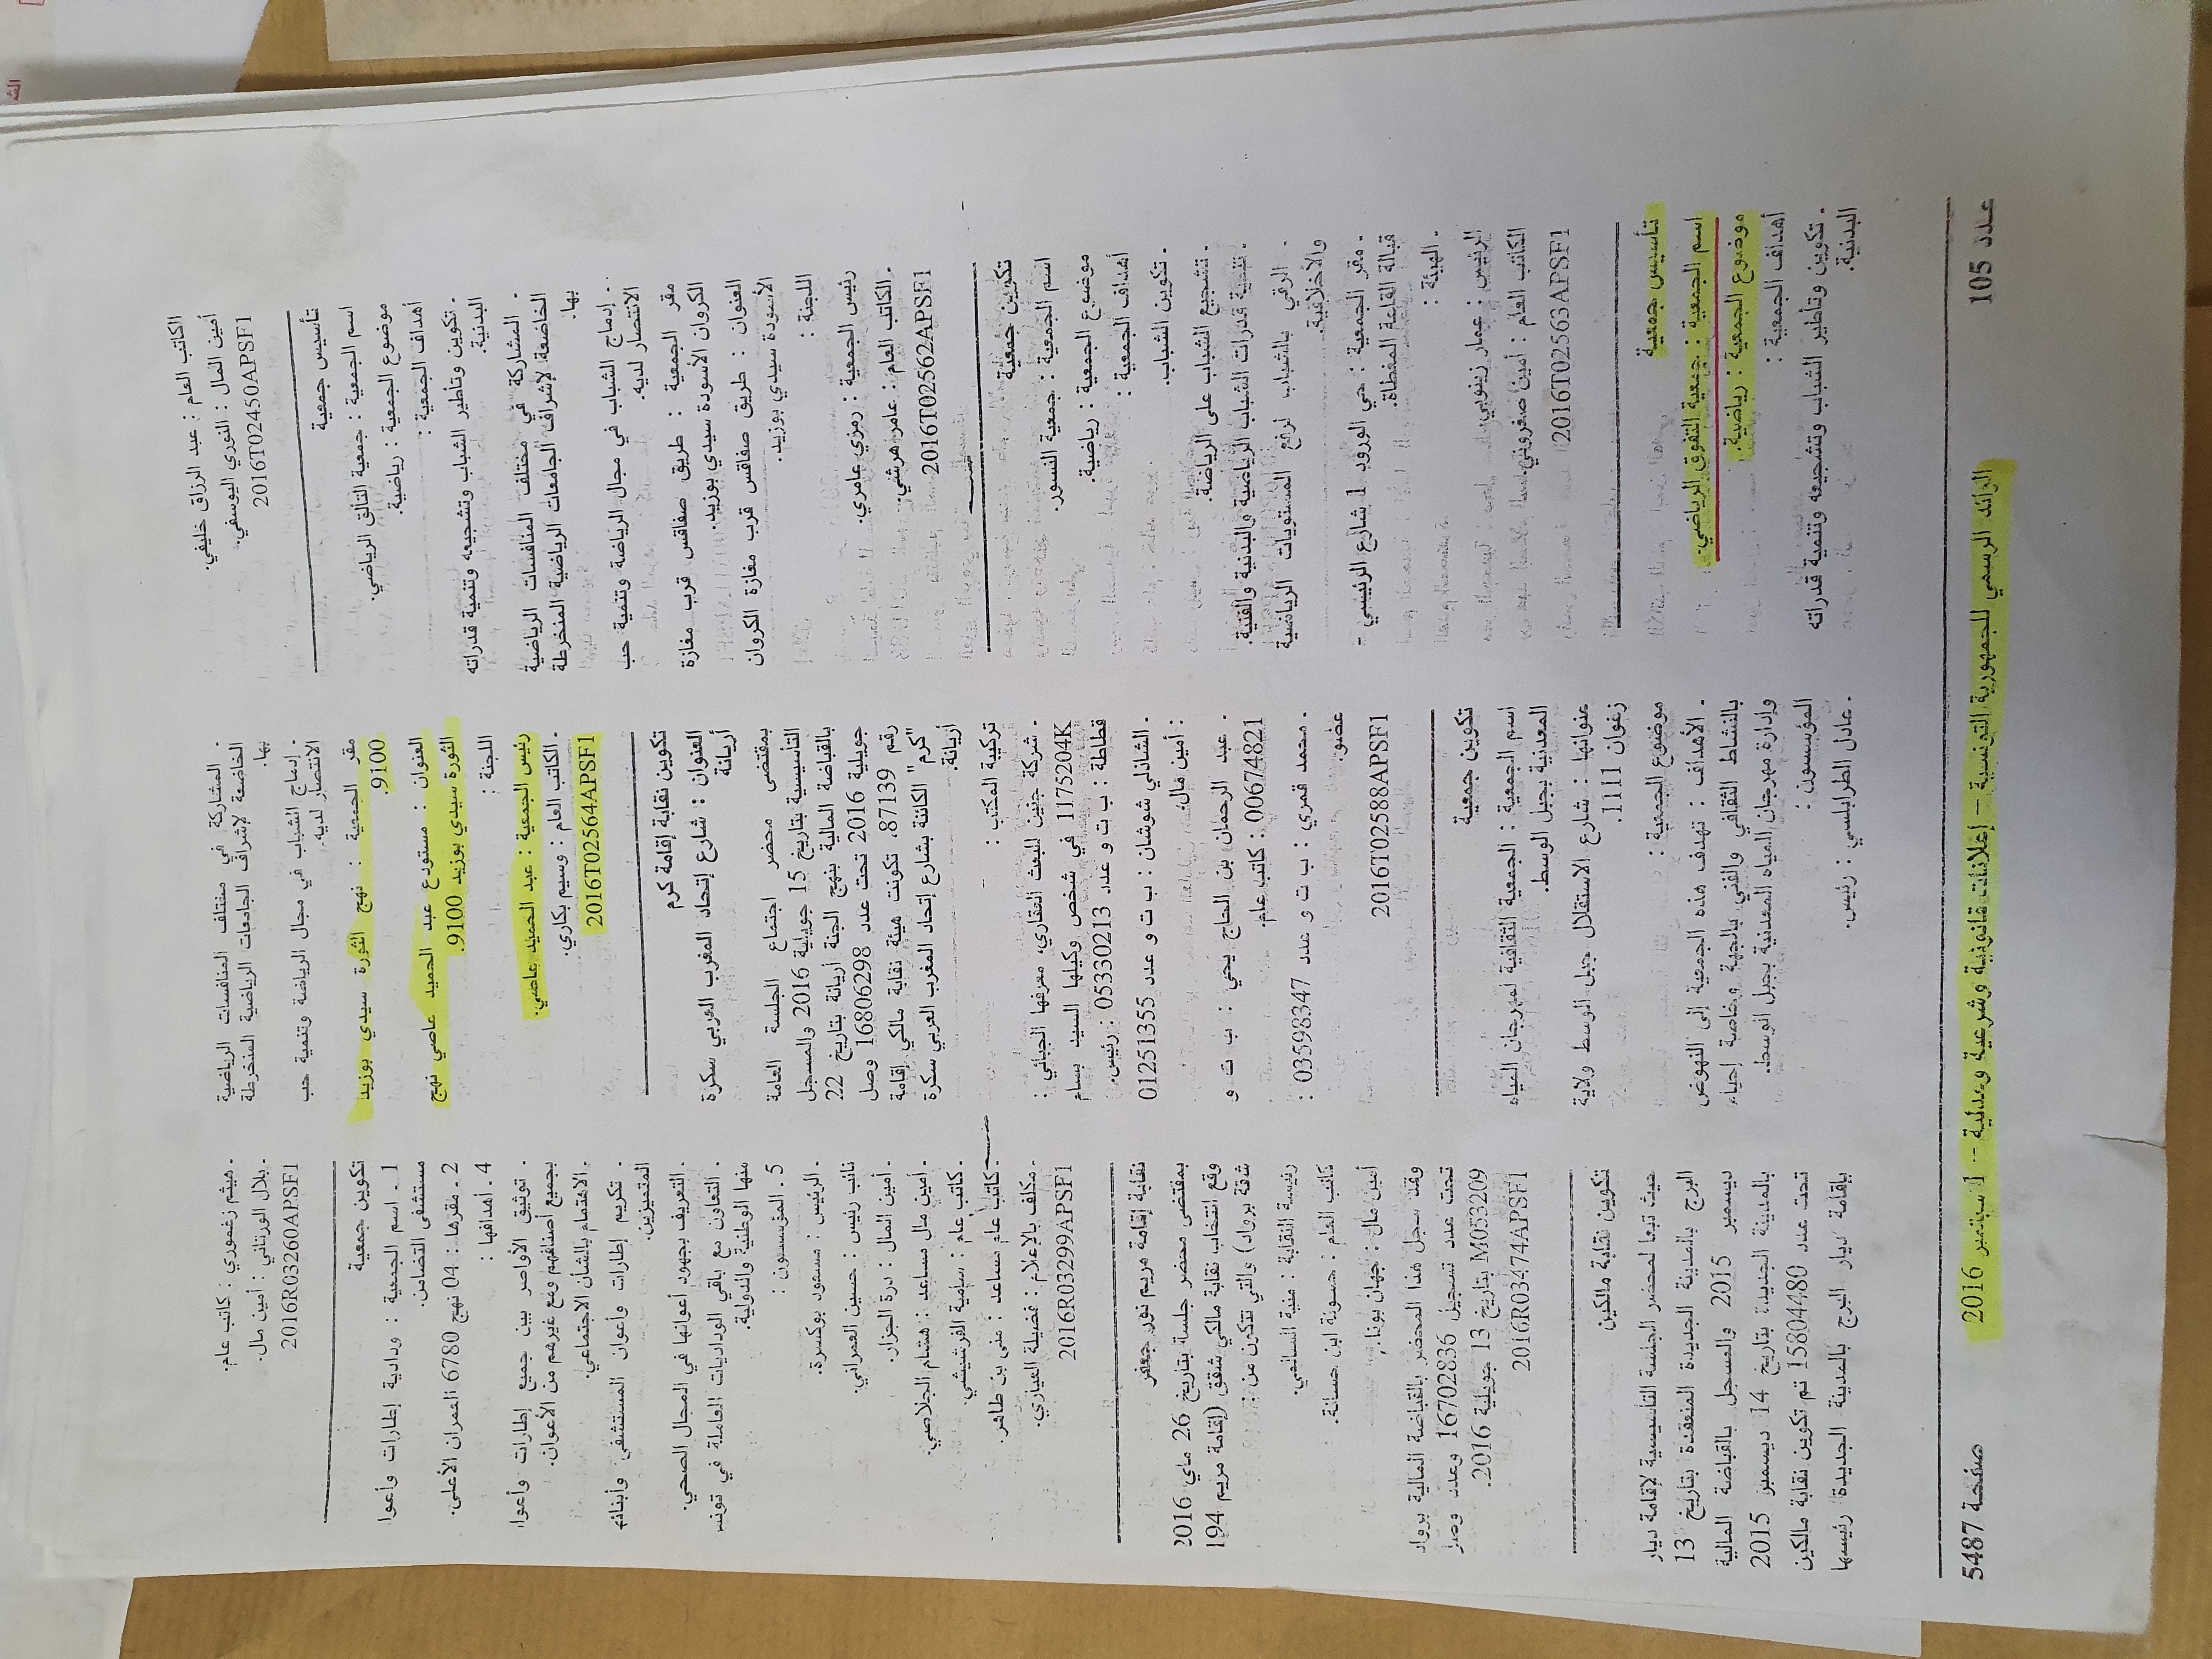 الكاتب العام : عبد الرزاق خليفي.
أمين المال : النوري اليوسفي.
2016T02450APSF1
تأسيس جمعية
اسم الجمعية : جمعية التألق الرياضي.
موضوع الجمعية : رياضية.
أهداف الجمعية :
. تكوين وتأطير الشباب وتشجيعه وتنمية قدراته
البدنية.
. المشاركة في مختلف المنافسات الرياضية
الخاضعة لإشراف الجامعات الرياضية المنخرطة
بها.
. إدماج الشباب في مجال الرياضة وتنمية حب
الانتصار لديه.
مقر الجمعية : طريق صفاقس قرب مغازة
الكروان الأسودة سيدي بوزيد.
العنوان : طريق صفاقس قرب مغازة الكروان
الأسودة سيدي بوزيد.
اللجنة :
رئيس الجمعية : رمزي عامري.
. الكاتب العام : عامر هرشي.
2016T02562APSF1
تكوين جمعية
اسم الجمعية : جمعية النسور.
موضوع الجمعية : رياضية.
أهداف الجمعية :
. تكوين الشباب.
. تشجيع الشباب على الرياضة.
. تنمية قدرات الشباب الرياضية والبدنية والفنية.
. الرقي بالشباب لرفع المستويات الرياضية
والأخلاقية.
. مقر الجمعية : حي الورود 1 شارع الرئيسي -
قبالة القاعة المغطاة.
. الهيئة :
الرئيس : عمار زينوبي.
الكاتب العام : أمين صغروني.
2016T02563APSF1
تأسيس جمعية
اسم الجمعية : جمعية التفوق الرياضي.
موضوع الجمعية : رياضية.
أهداف الجمعية :
. تكوين وتأطير الشباب وتشجيعه وتنمية قدراته
البدنية.
. المشاركة في مختلف المنافسات الرياضية
الخاضعة لإشراف الجامعات الرياضية المنخرطة
بها.
. إدماج الشباب في مجال الرياضة وتنمية حب
الانتصار لديه.
مقر الجمعية : نهج الثورة سيدي بوزيد
9100.
العنوان : مستودع عبد الحميد عاصي نهج
الثورة سيدي بوزيد 9100.
اللجنة :
رئيس الجمعية : عبد الحميد عاصي.
. الكاتب العام : وسيم بكاري.
2016T02564APSF1
تكوين نقابة إقامة كرم
العنوان : شارع إتحاد المغرب العربي سكرة
أريانة
بمقتضى محضر اجتماع الجلسة العامة
التأسيسية بتاريخ 15 جويلية 2016 والمسجل
بالقباضة المالية بنهج الجنة أريانة بتاريخ 22
جويلية 2016 تحت عدد 16806298 وصل
رقم 87139، تكونت هيئة نقابة مالكي إقامة
"كرم" الكائنة بشارع إتحاد المغرب العربي سكرة
أريانة.
تركيبة المكتب :
. شركة جنين للبعث العقاري، معرفها الجبائي :
1175204K في شخص وكيلها السيد بسام
قطاطة : ب ت و عدد 05330213 : رئيس.
. الشاذلي شوشان : ب ت و عدد 01251355
: أمين مال.
. عبد الرحمان بن الحاج يحي : ب ت و
00674821 : كاتب عام.
. محمد قمري : ب ت و عدد 03598347 :
عضو.
2016T02588APSF1
تكوين جمعية
اسم الجمعية : الجمعية الثقافية لمهرجان المياه
المعدنية بجبل الوسط.
عنوانها : شارع الاستقلال جبل الوسط ولاية
زغوان 1111.
موضوع الجمعية :
. الأهداف : تهدف هذه الجمعية إلى النهوض
بالنشاط الثقافي والفني بالجهة وخاصة إحياء
وإدارة مهرجان المياه المعدنية بجبل الوسط.
المؤسسون :
. عادل الطرابلسي : رئيس.
. هيثم زغموري : كاتب عام.
. بلال الورتاني : أمين مال.
2016R03260APSF1
تكوين جمعية
1 . اسم الجمعية : ودادية إطارات وأعوا
مستشفى التضامن.
2 . مقرها : 04 نهج 6780 العمران الأعلى.
4 . أهدافها :
. توثيق الأواصر بين جميع إطارات وأعوا
بجميع أصنافهم ومع غيرهم من الأعوان.
. الاهتمام بالشأن الاجتماعي.
. تكريم إطارات وأعوان المستشفى وأبنائهم
المتميزين.
. التعريف بجهود أعوانها في المجال الصحي.
. التعاون مع باقي الوداديات العاملة في تونس
منها الوطنية والدولية.
5 . المؤسسون :
. الرئيس : مسعود بوكسرة.
نائب رئيس : حسين العمراني.
. أمين المال : درة الجزار.
. أمين مال مساعد : هشام الجلاصي.
. كاتب عام : سامية الفرشيشي.
. كاتب عام مساعد : منى بن طاهر.
. مكلف بالإعلام : فضيلة العياري.
2016R03299APSF1
نقابة إقامة مريم نور جعفر
بمقتضى محضر جلسة بتاريخ 26 ماي 2016
وقع انتخاب نقابة مالكي شقق (إقامة مريم 194
شقة برواد) والتي تتكون من :
رئيسة النقابة : منية السالمي.
كاتب العام : حسونة ابن حسانة.
أمين مال : جهان بوغانم
وقد سجل هذا المحضر بالقباضة المالية برواد
تحت عدد تسجيل 16702836 وعدد وصل
M053209 بتاريخ 13 جويلية 2016.
2016R03474APSF1
تكوين نقابة مالكين
حيث تبعا لمحضر الجلسة التأسيسية لإقامة ديار
البرج بالمدينة الجديدة المنعقدة بتاريخ 13
ديسمبر 2015 والمسجل بالقباضة المالية
بالمدينة الجديدة بتاريخ 14 ديسمبر 2015
تحت عدد 15804480 تم تكوين نقابة مالكين
بإقامة ديار البرج بالمدينة الجديدة رئيسها
عدد 105
الرائد الرسمي للجمهورية التونسية – إعلانات قانونية وشرعية وعدلية -- 1 سبتمبر 2016
صفحة 5487